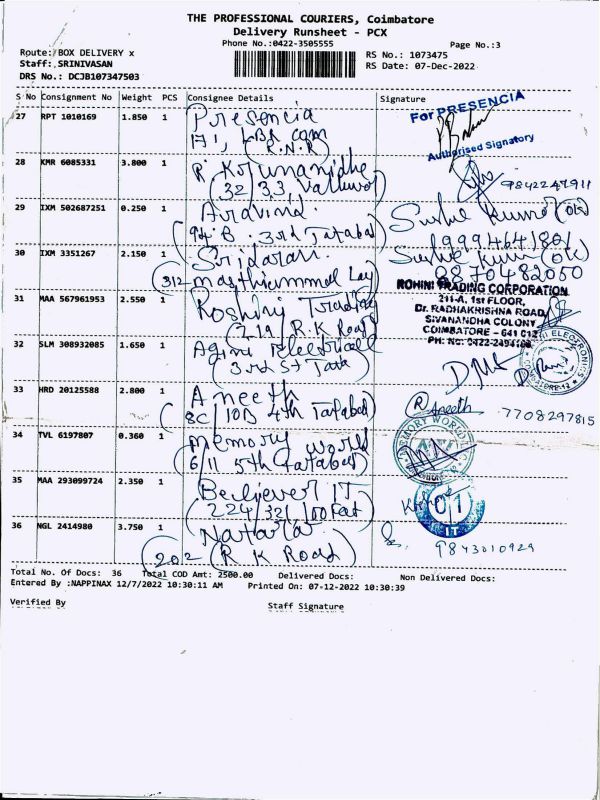 THE PROFESSIONAL COURIERS, Coimbatore
Delivery Runsheet - PCX
Phone No.:0422-3505555
Page No.:3
Route: BOX DELIVERY x
RS No.: 1073475
Staff: SRINIVASAN
RS Date: 07-Dec-2022
DRS No.: DCJB107347503
S No Consignment No Weight PCS Consignee Details Signature
27 RPT 1010169 1.850 1 Presencia
171, LBR com
(R.N.R)
For PRESENCIA
Authorised Signatory
28 KMR 6085331 3.800 1 R
(32/33, Valluvar)
9842247911
29 IXM 502687251 0.250 1 Aravind.
(94.B. 3rd Tatabad)
(ok)
9994641801
30 IXM 3351267 2.150 1 Sridaran.
(312
(ok)
9870482050
31 MAA 567961953 2.550 1 Roshini Trading
(219/R.K Road)
ROHINI TRADING CORPORATION
211-A, 1st FLOOR,
Dr. RADHAKRISHNA ROAD
SIVANANDHA COLONY
COIMBATORE - 641 012
PH: NO: 0422-2494100
32 SLM 308932085 1.650 1 Agini Electricall
(3rd St Tata)
ELECTRONICS
33 HRD 20125588 2.800 1 Aneeth
(8C/10D 4th Tatabad)
Aneeth
7708297815
34 TVL 6197807 0.360 1 Memory World
(6/11 5th Tatabad)
MEMORY WORLD
35 MAA 293099724 2.350 1 Believer IT
(224/321/100Feat
IT
36 NGL 2414980 3.750 1 Natara
(202 (R K Road)
9843010929
Total No. Of Docs: 36 Total COD Amt: 2500.00 Delivered Docs: Non Delivered Docs:
Entered By :NAPPINAX 12/7/2022 10:30:11 AM Printed On: 07-12-2022 10:30:39
Verified By
Staff Signature